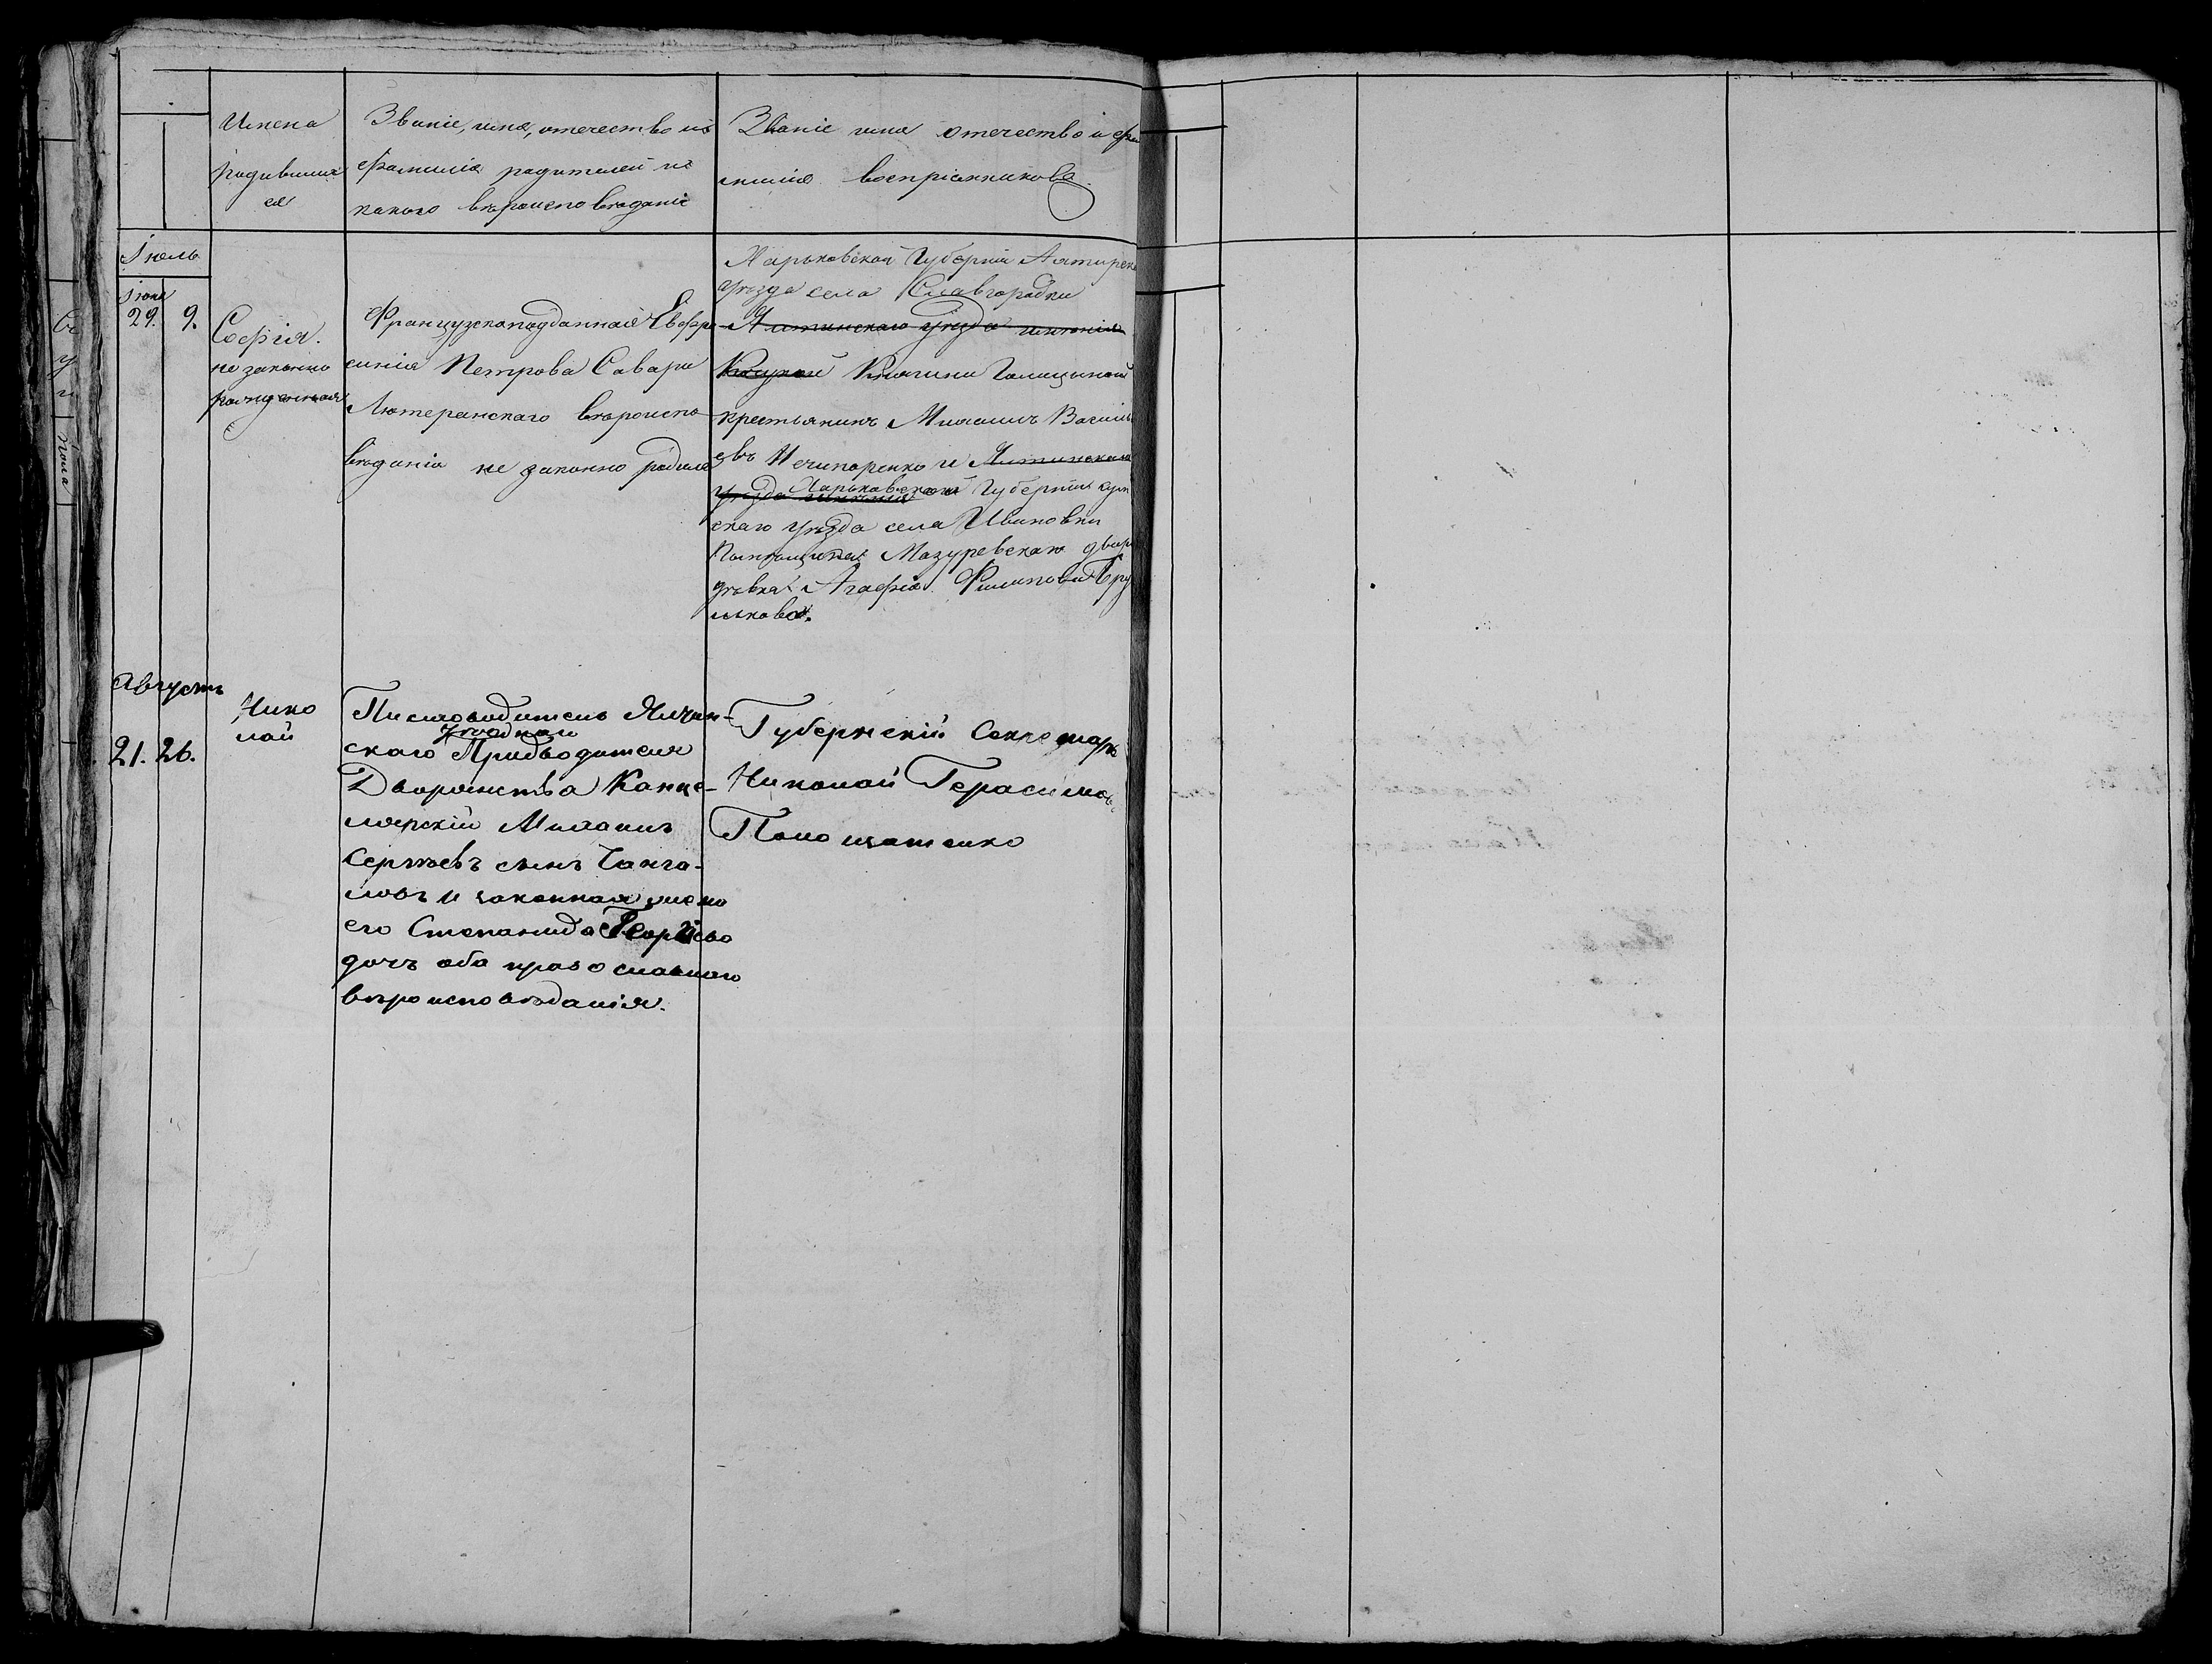 Имена
родивших
ся
Званіе, имя, отечество и
фамилія родителей и
какого вѣроисповѣданіе
Званіе имя отечество и фа
милія воспріемниковъ
Іюль
Іюня
29. 9.
Софія.
не законно
рожденная
Французскоподданная Евфро
синія Петрова Савари
Лютеранскаго вѣроиспо
вѣданія не законно родила
Харьковской Губерніи Ахтырск
уѣзда села Славгородки
Ялтинскаго уѣзда имѣнія
Княгини Голицыной
крестьянинъ Михаилъ Василь
евъ Нечипоренко и Ялтинскаго
уѣзда имѣнія Харьковской Губерніи
скаго уѣзда села Ивановки
Помѣщика Мазуревскаго двор
Агафія Филипова
лькова.
Августъ
21. 26.
Нико
лай
Писмоводитель Ялтин-
скаго уѣзднаго Предводителя
Дворянства Канце-
лярскій Михаилъ
Сергѣевъ сынъ
ловъ и законная жена
его Степанида Георгіева
дочь оба православнаго
вѣроисповѣданія.
Губернскій Секретарь
Николай Герасимов